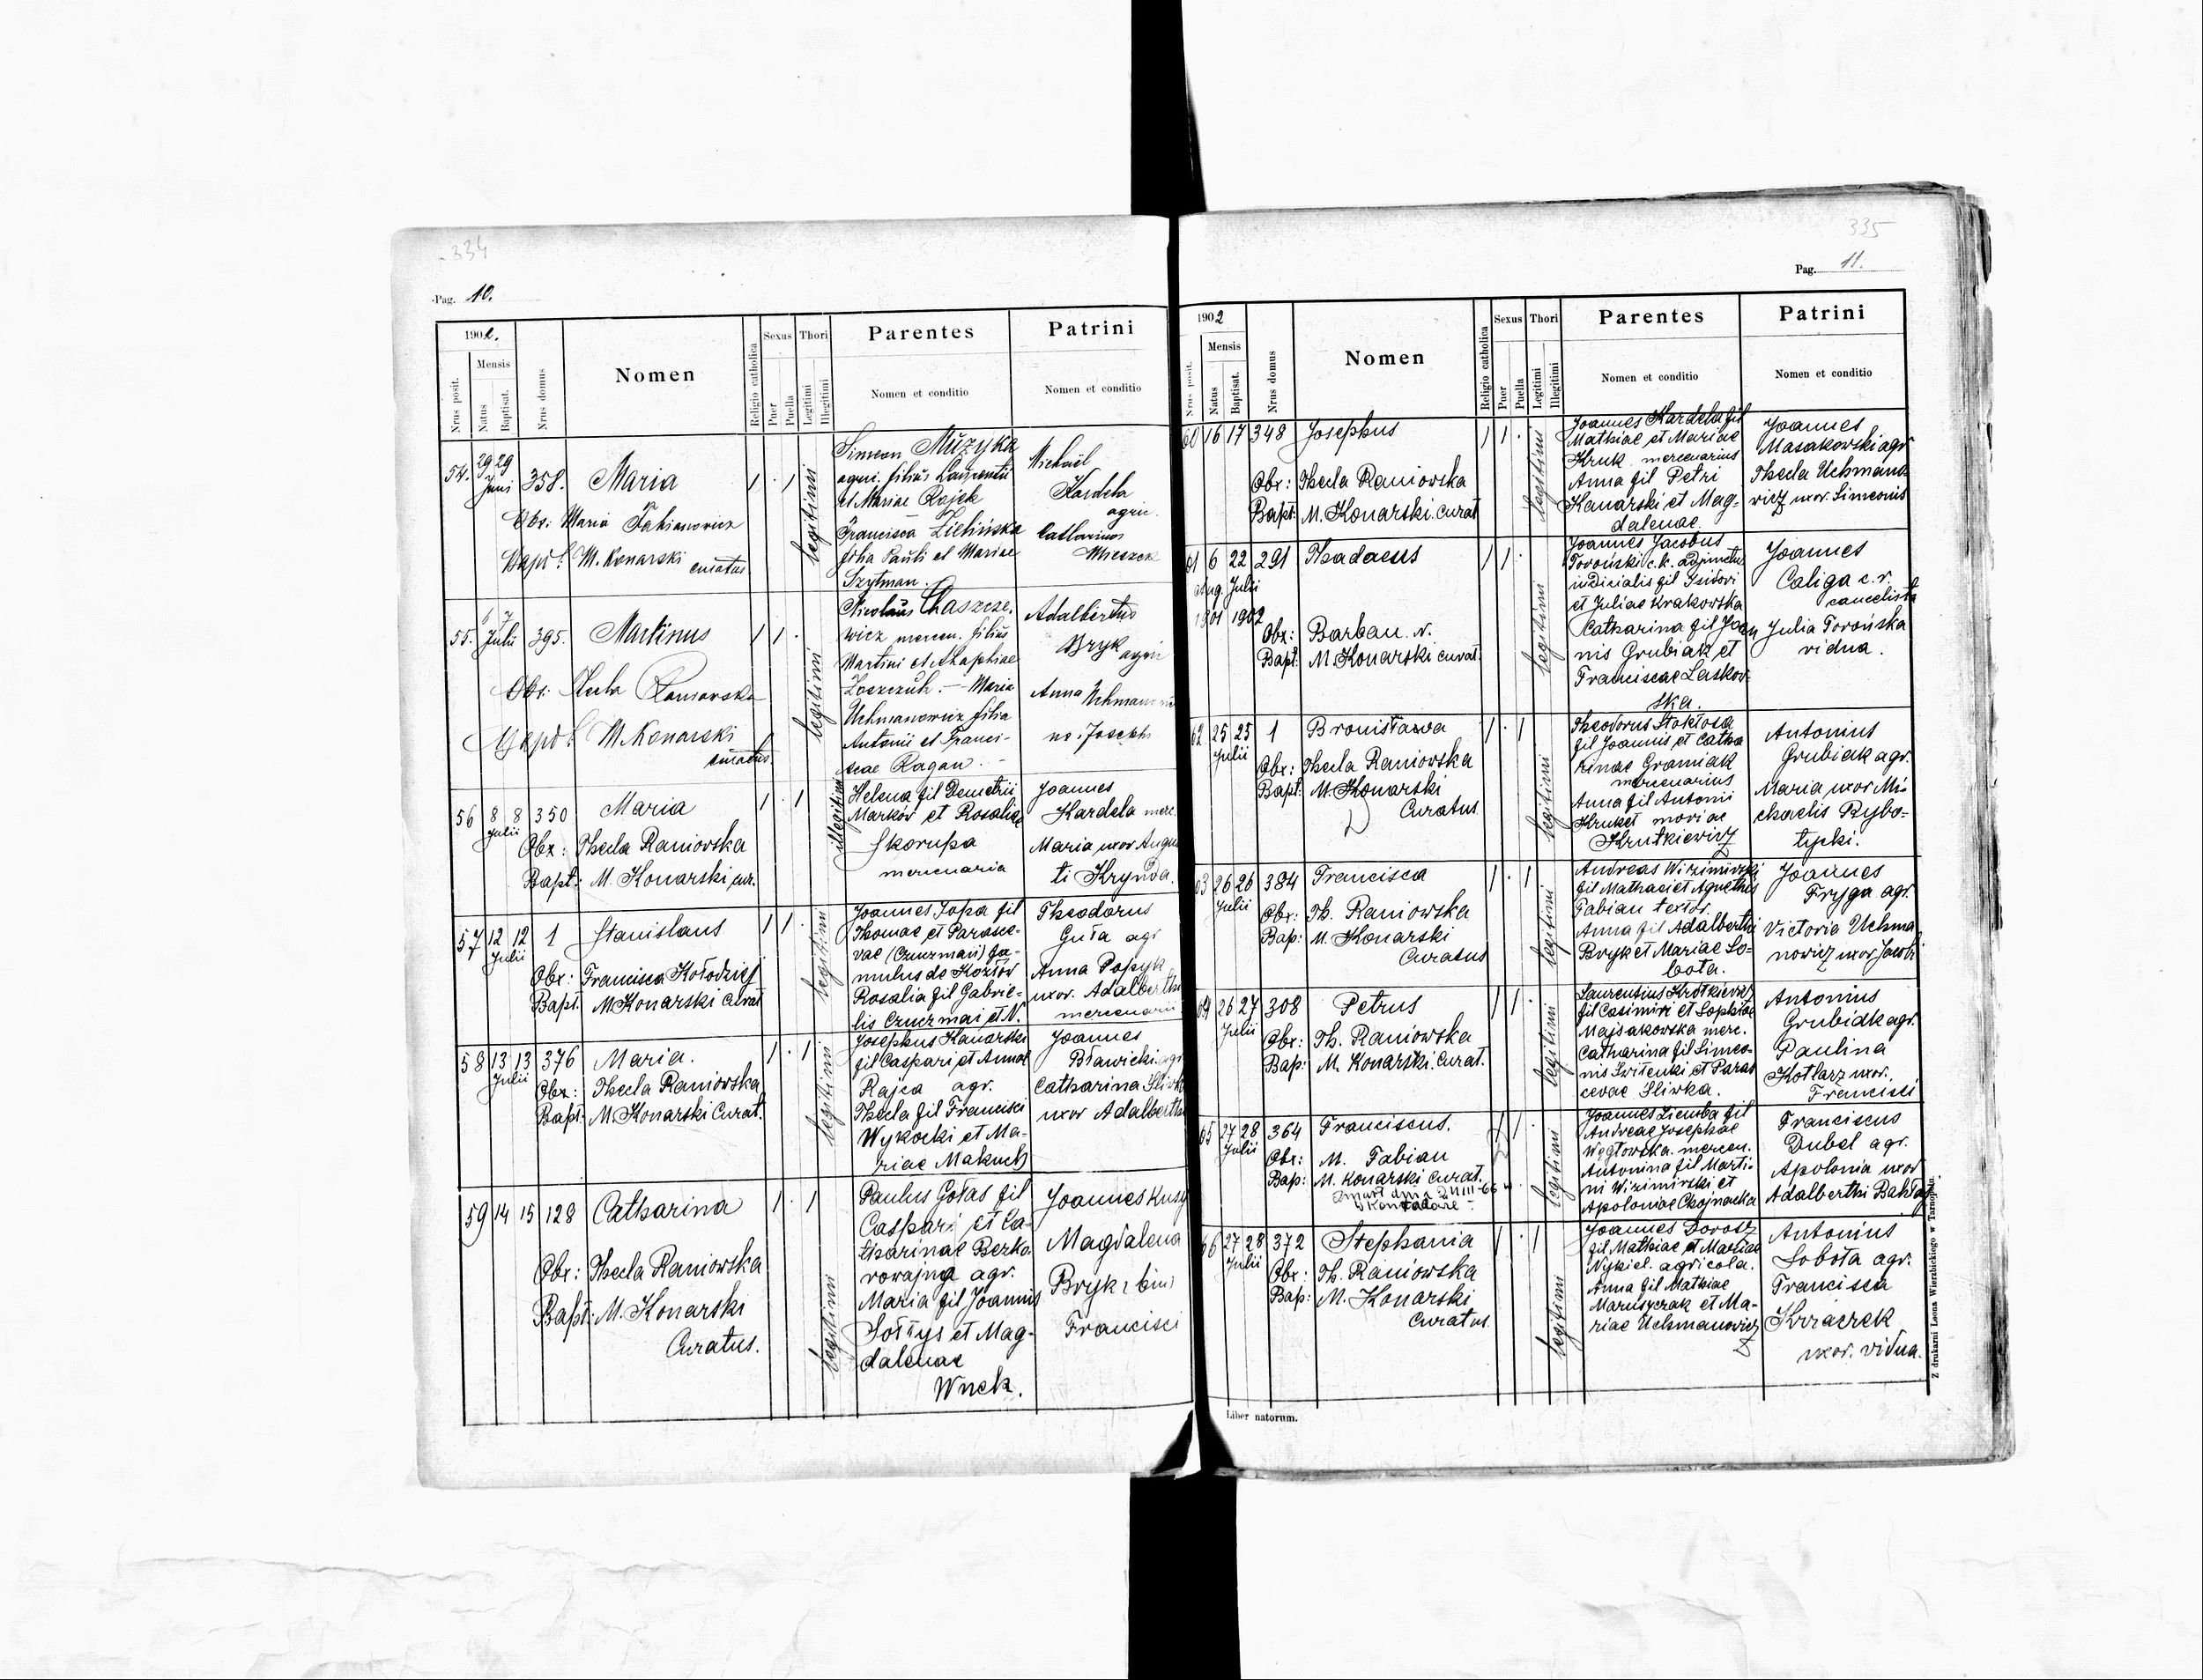 334
Pag. 10.
1902.
Nrus posit.
Mensis
Natus
Baptisat.
Nrus domus
Nomen
Religio catholica
Sexus
Puer
Puella
Thori
Legitimi
Illegitimi
Parentes
Nomen et conditio
Patrini
Nomen et conditio
54. 29 29 Juni 358. Maria 1 · 1
Obs: Maria Fabianowicz
M. Konarski curatus
legitimi
Simeon Muzyka
agri. filius Laurentii
et Mariae Rajek
Francisca Zielińska
filia Pauli et Mariae
Szytman.
Michael
Kardela
agri.
Catharina
Mieszek
55. 6 7 Julii 395. Martinus 1 1 ·
Obs: Thecla Raniowska
M. Konarski
curatus
legitimi
Nicolaus Chaszcze-
wicz mercen. filius
Martini et Agaphiae
Łoszczuk. — Maria
Uchmanowicz filia
Antonii et Franci-
scae Ragan. -
Adalbertus
Bryk agri
Anna Uchman
Josephi
56 8 8 Julii 350 Maria 1 · 1
Obx: Thecla Raniovska
Bapt: M. Konarski cur.
illegitimi
Helena fil Demetrii
Markòv et Rosaliae
Skorupa
mercenaria
Joannes
Kardela merc.
Maria uxor Augus
ti Krynda.
57 12 12 Julii 1 Stanislaus 1 1 ·
Obx: Francisca Kołodziej
Bapt. M Konarski Curat
legitimi
Joannes Sopa fil
Thomae et Parasce-
vae (Czuczman) fa-
mulus de Kozłów
Rosalia fil Gabrie-
lis Czuczmai et N.
Theodorus
Guła agr
Anna Popyk
uxor. Adalberthi
mercenarii
58 13 13 Julii 376 Maria. 1 · 1
Obx: Thecla Raniovska
Bapt: M. Konarski Curat.
legitimi
Josephus Kanarski
fil Caspari et Annae
Rajca agr.
Thecla fil Francisci
Wykocki et Ma-
riae Makuch
Joannes
Bławicki agr
Catharina Sliwka
uxor Adalberthi
59 14 15 128 Catharina 1 · 1
Obx: Thecla Raniowska
Bapt: M. Konarski
Curatus.
legitimi
Paulus Gołas fil
Caspari et Ca-
tharinae Berko
rowajna agr.
Maria fil Joannis
Sołtys et Mag-
dalenae
Wnek.
Joannes Kusy
Magdalena
Bryk
Francisci
335
Pag. 11.
1902
Nrus posit.
Mensis
Natus
Baptisat.
Nrus domus
Nomen
Religio catholica
Sexus
Puer
Puella
Thori
Legitimi
Illegitimi
Parentes
Nomen et conditio
Patrini
Nomen et conditio
60 16 17 348 Josephus 1 1 ·
Obx: Thecla Raniovska
Bapt: M. Konarski. Curat
legitimi
Joannes Kardela fil
Mathiae et Mariae
Kruk mercenarius
Anna fil Petri
Kanarski et Mag-
dalenae.
Joannes
Masakowski agr
Thecla Uchmano-
wicz uxor. Simeonis
61 6 22 291 Thadaeus 1 1 ·
Aug. Julii
1901 1902
Obx: Barbau. N.
Bapt: M. Konarski curat.
legitimi
Joannes Jacobus
Toroński c.k. adjunctus
iudicialis fil Isidori
et Juliae Krakowska
Catharina fil Joan
nis Grubiak et
Franciscae Leskov-
ska.
Joannes
Caliga c. r.
cancelista
Julia Torońska
vidua.
62 25 25 Julii 1 Bronisława 1 · 1
Obx: Thecla Raniowska
Bapt: M. Konarski
Curatus
legitimi
Theodorus Stokłosa
fil Joannis et Catha
rinae Graniak
mercenarius
Anna fil Antonii
Kruk et mariae
Krutkiewicz
Antonius
Grubiak agr.
Maria uxor Mi-
chaelis Rybo-
tycki.
63 26 26 Julii 384 Francisca 1 · 1
Obx: Th. Raniowska
Bap: M. Konarski
Curatus
legitimi
Andreas Wizimirski
fil Mathaei et Agnethis
Fabian textor.
Anna fil Adalberthi
Bryk et Mariae So-
bota.
Joannes
Fryga agr.
Victoria Uchma
nowicz uxor Jacobi
64 26 27 Julii 308 Petrus 1 1 ·
Obx: Th. Raniowska
Bap: M. Konarski. Curat.
legitimi
Laurentius Krotkiewicz
fil Casimiri et Sophiae
Majsakowska merc.
Catharina fil Simeo-
nis Switenki et Paras
cevae Sliwka.
Antonius
Grubidk agr.
Paulina
Kotlarz uxor.
Francisci
65 27 28 Julii 364 Franciscus. 1 1 ·
Obx: M. Fabian
Bap: M. Konarski Curat.
legitimi
Joannes Ziemba fil
Andreae Josephae
Węgłowska. mercen.
Antonina fil Marti-
ni Wizimirski et
Apoloniae Chojnacka
Franciscus
Dubel agr.
Apolonia uxor
Adalberthi Bakłaj
66 27 28 Julii 372 Stephania 1 · 1
Obx: Th. Raniowska
Bap: M. Konarski
Curatus.
legitimi
Joannes Dorosz
fil Mathiae et Mariae
Nykiel. agricola.
Anna fil Mathiae
Marusyczak et Ma-
riae Uchmanowicz
Antonius
Sobota agr.
Francisca
Krzaczek
uxor. vidua.
Liber natorum.
Z drukarni Leona Wierzbickiego w Tarnopolu.